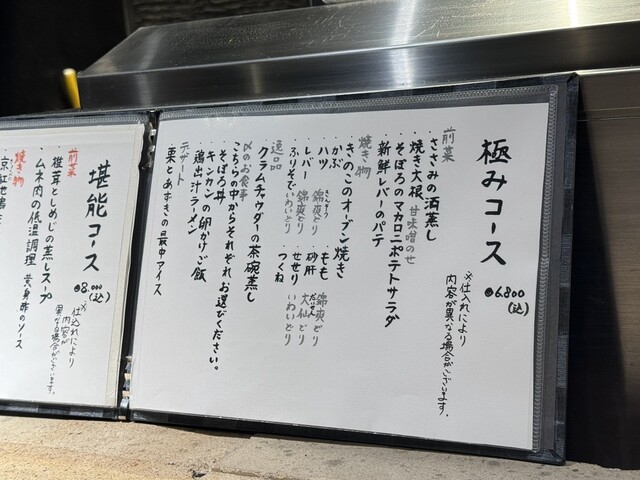 極みコース
●6,800
(込)
※仕入れにより
内容が異なる場合がございます。
前菜
・ささみの酒蒸し
・焼き大根 甘味噌のせ
・そぼろのマカロニポテトサラダ
・新鮮レバーのパテ
焼き物
・かぶ
・きのこのオーブン焼き
・ハツ 錦爽どり ・もも 錦爽どり
・レバー 錦爽どり ・砂肝 大仙どり
・ふりそで いわいどり ・せせり いわいどり
・つくね
逸品
・クラムチャウダーの茶碗蒸し
〆のお食事
こちらの中からそれぞれお選びください。
・そぼろ丼
・キンカンの卵かけご飯
・鶏出汁ラーメン
デザート
・栗とあずきの最中アイス
堪能コース
●8,000
(込)
※仕入れにより
内容が
異なる場合がございます。
前菜
・椎茸としめじの蒸しスープ
・ムネ肉の低温調理 黄身酢のソース
焼き物